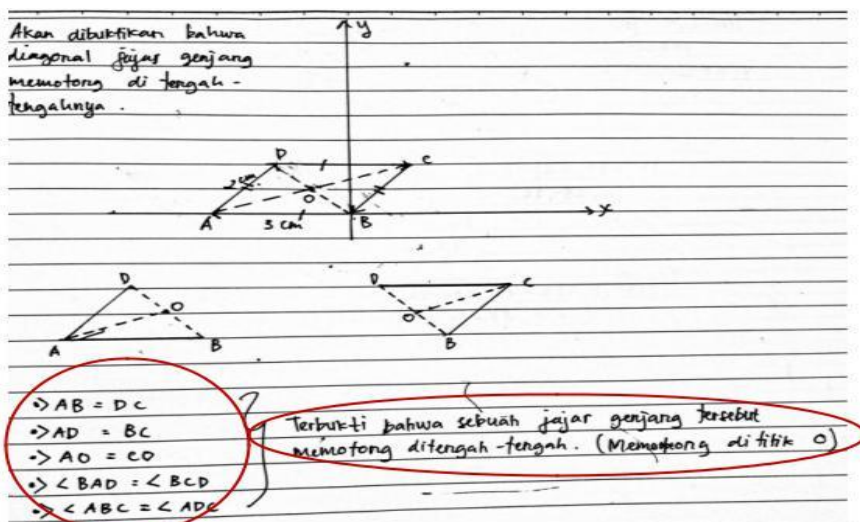 Akan dibuktikan bahwa
diagonal jajar genjang
memotong di tengah-
tengahnya.
y
D
C
2 cm.
O
A
3 cm
B
x
D
O
A
B
D
C
O
B
•> AB = DC
•> AD = BC
•> AO = CO
•> < BAD = < BCD
•> < ABC = < ADC
Terbukti bahwa sebuah jajar genjang tersebut
memotong ditengah-tengah. (Memotong di titik O)